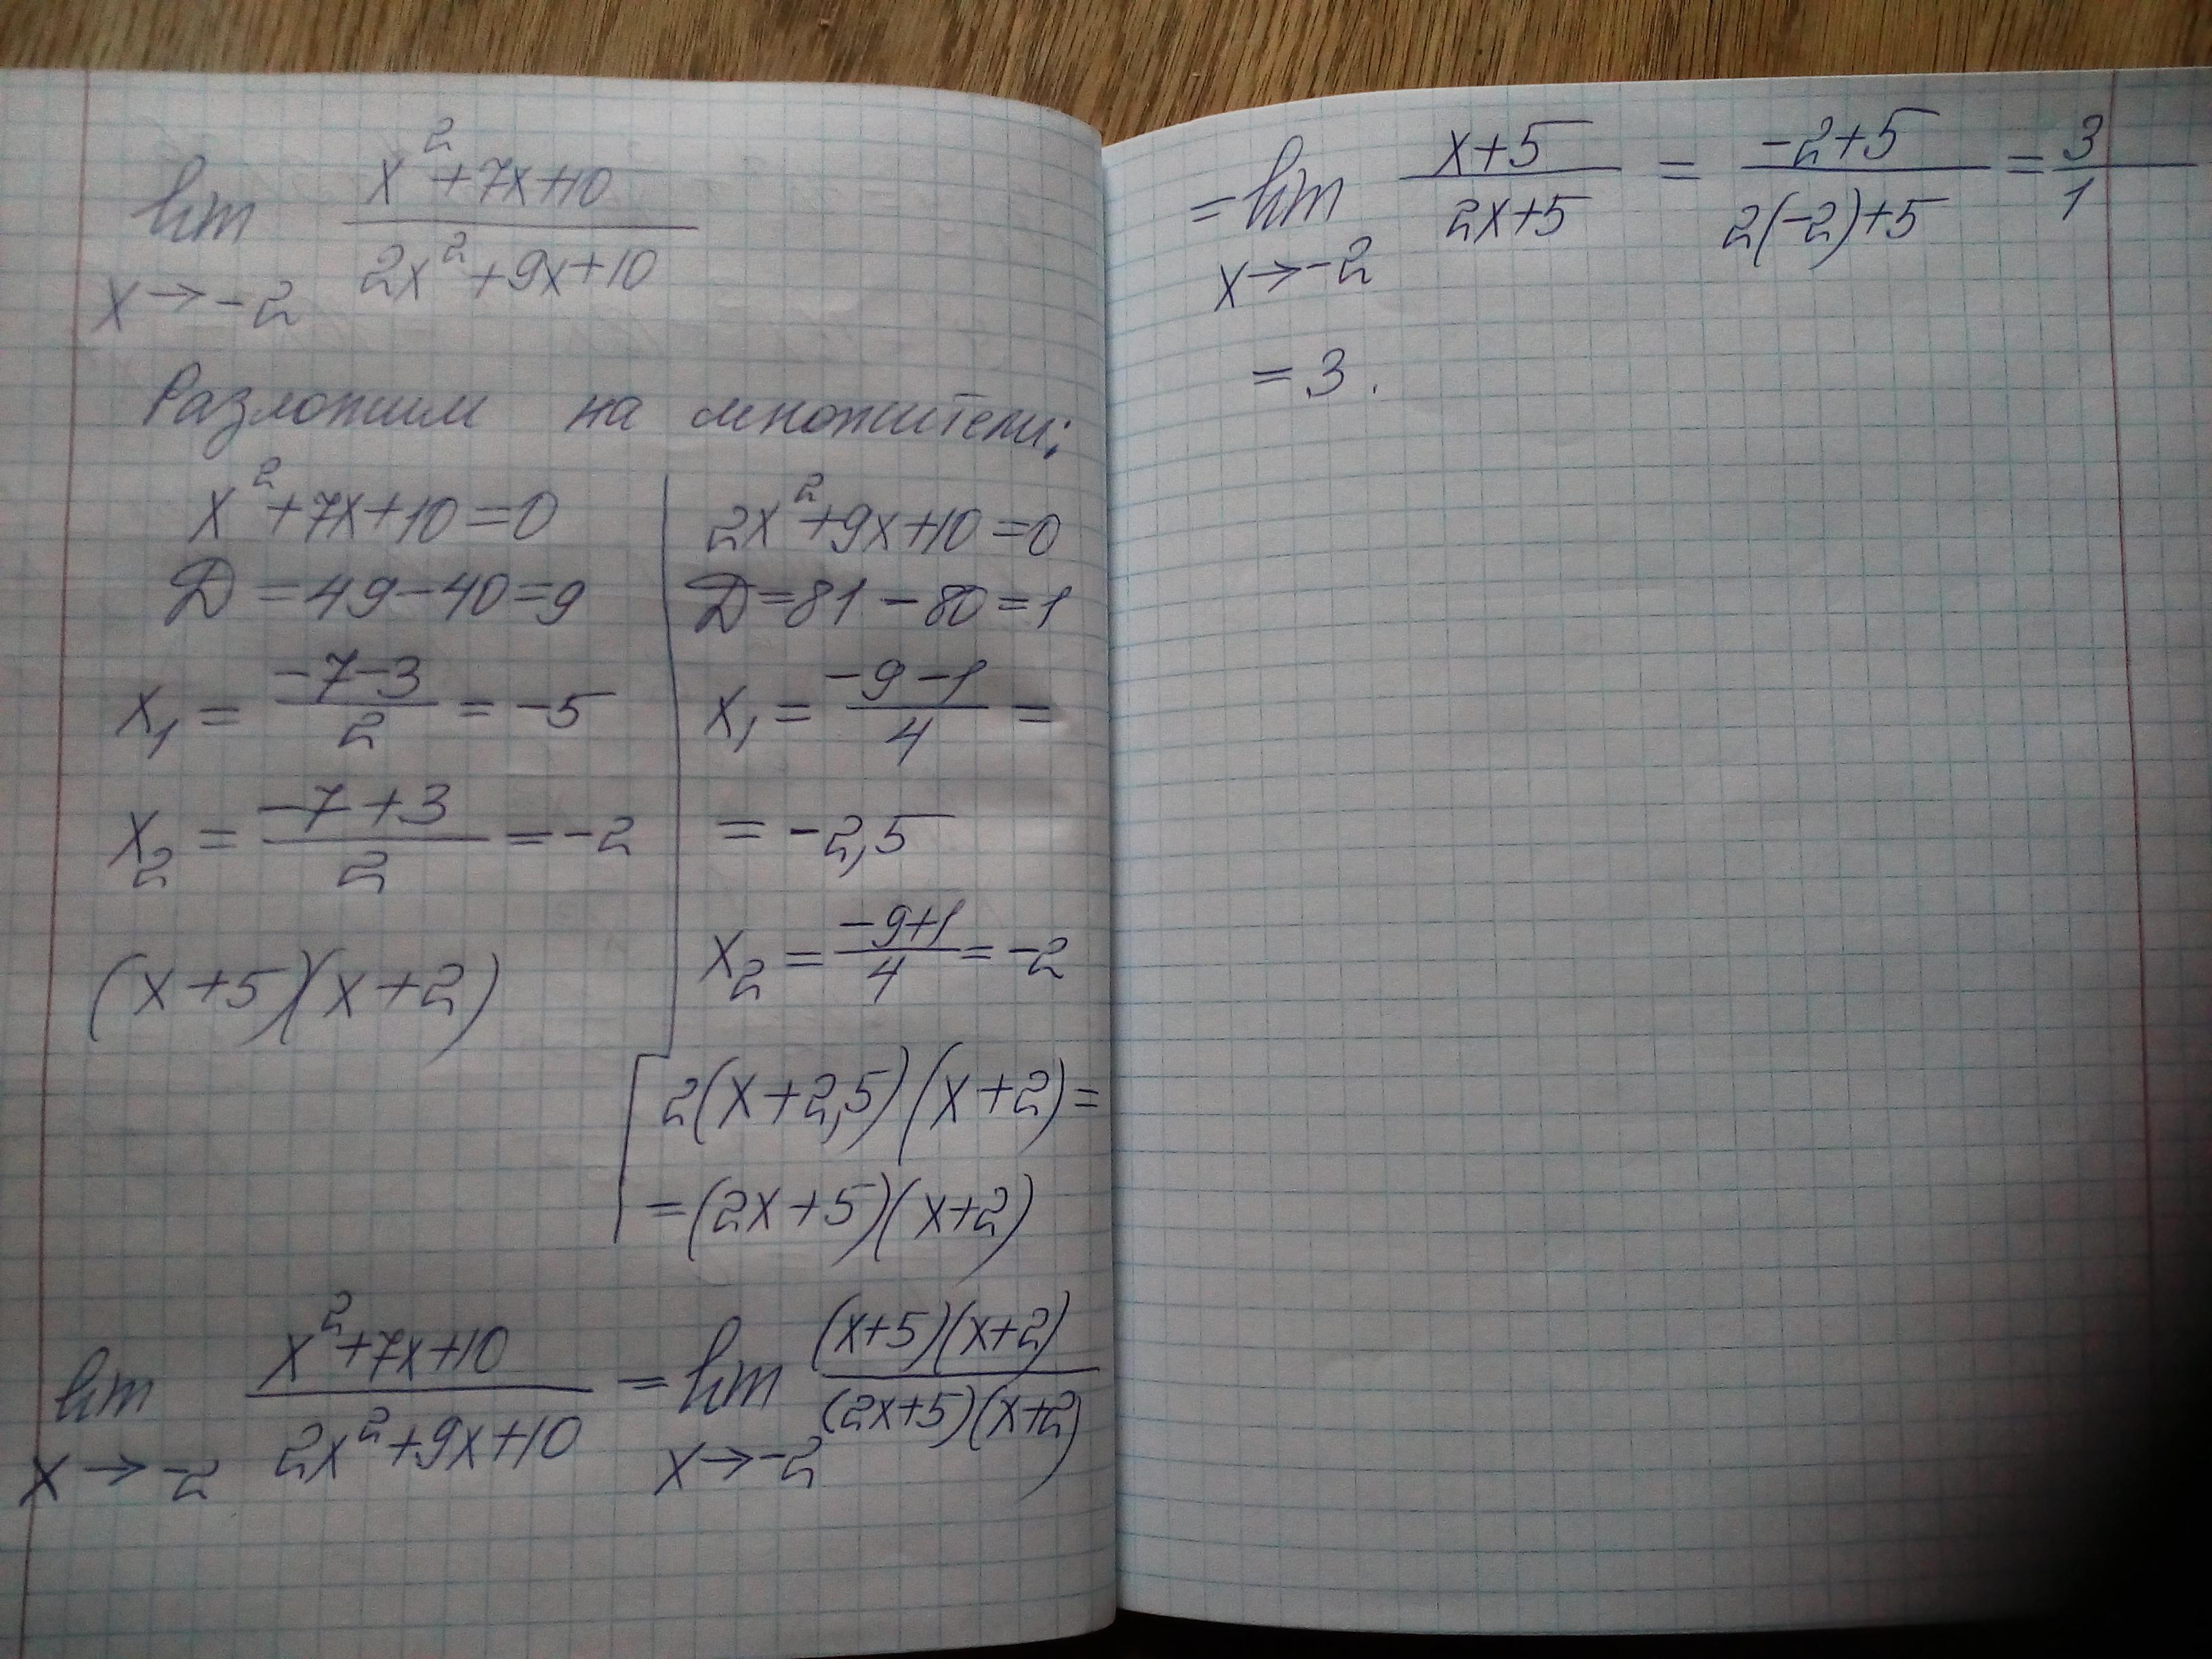 lim x²+7x+10 / 2x²+9x+10
x→-2
Разложим на множители:
x²+7x+10=0
Д=49-40=9
x₁ = -7-3 / 2 = -5
x₂ = -7+3 / 2 = -2
(x+5)(x+2)
2x²+9x+10=0
Д=81-80=1
x₁ = -9-1 / 4 =
= -2,5
x₂ = -9+1 / 4 = -2
2(x+2,5)(x+2)=
=(2x+5)(x+2)
lim x²+7x+10 / 2x²+9x+10 = lim (x+5)(x+2) / (2x+5)(x+2)
x→-2 x→-2
=lim x+5 / 2x+5 = -2+5 / 2(-2)+5 = 3 / 1
x→-2
=3.